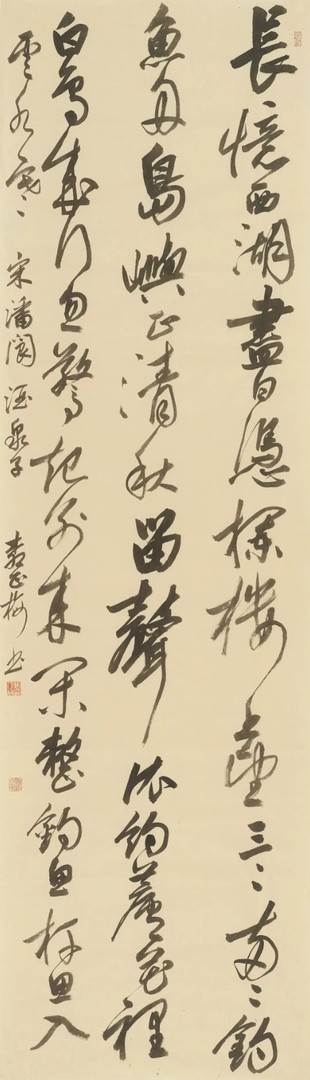 長憶西湖盡日憑欄樓上望三三兩兩釣
魚舟島嶼正清秋笛聲依約蘆花裡
白鳥成行忽驚起別來閑整釣魚竿思入
雲水寒 宋潘閬酒泉子 書